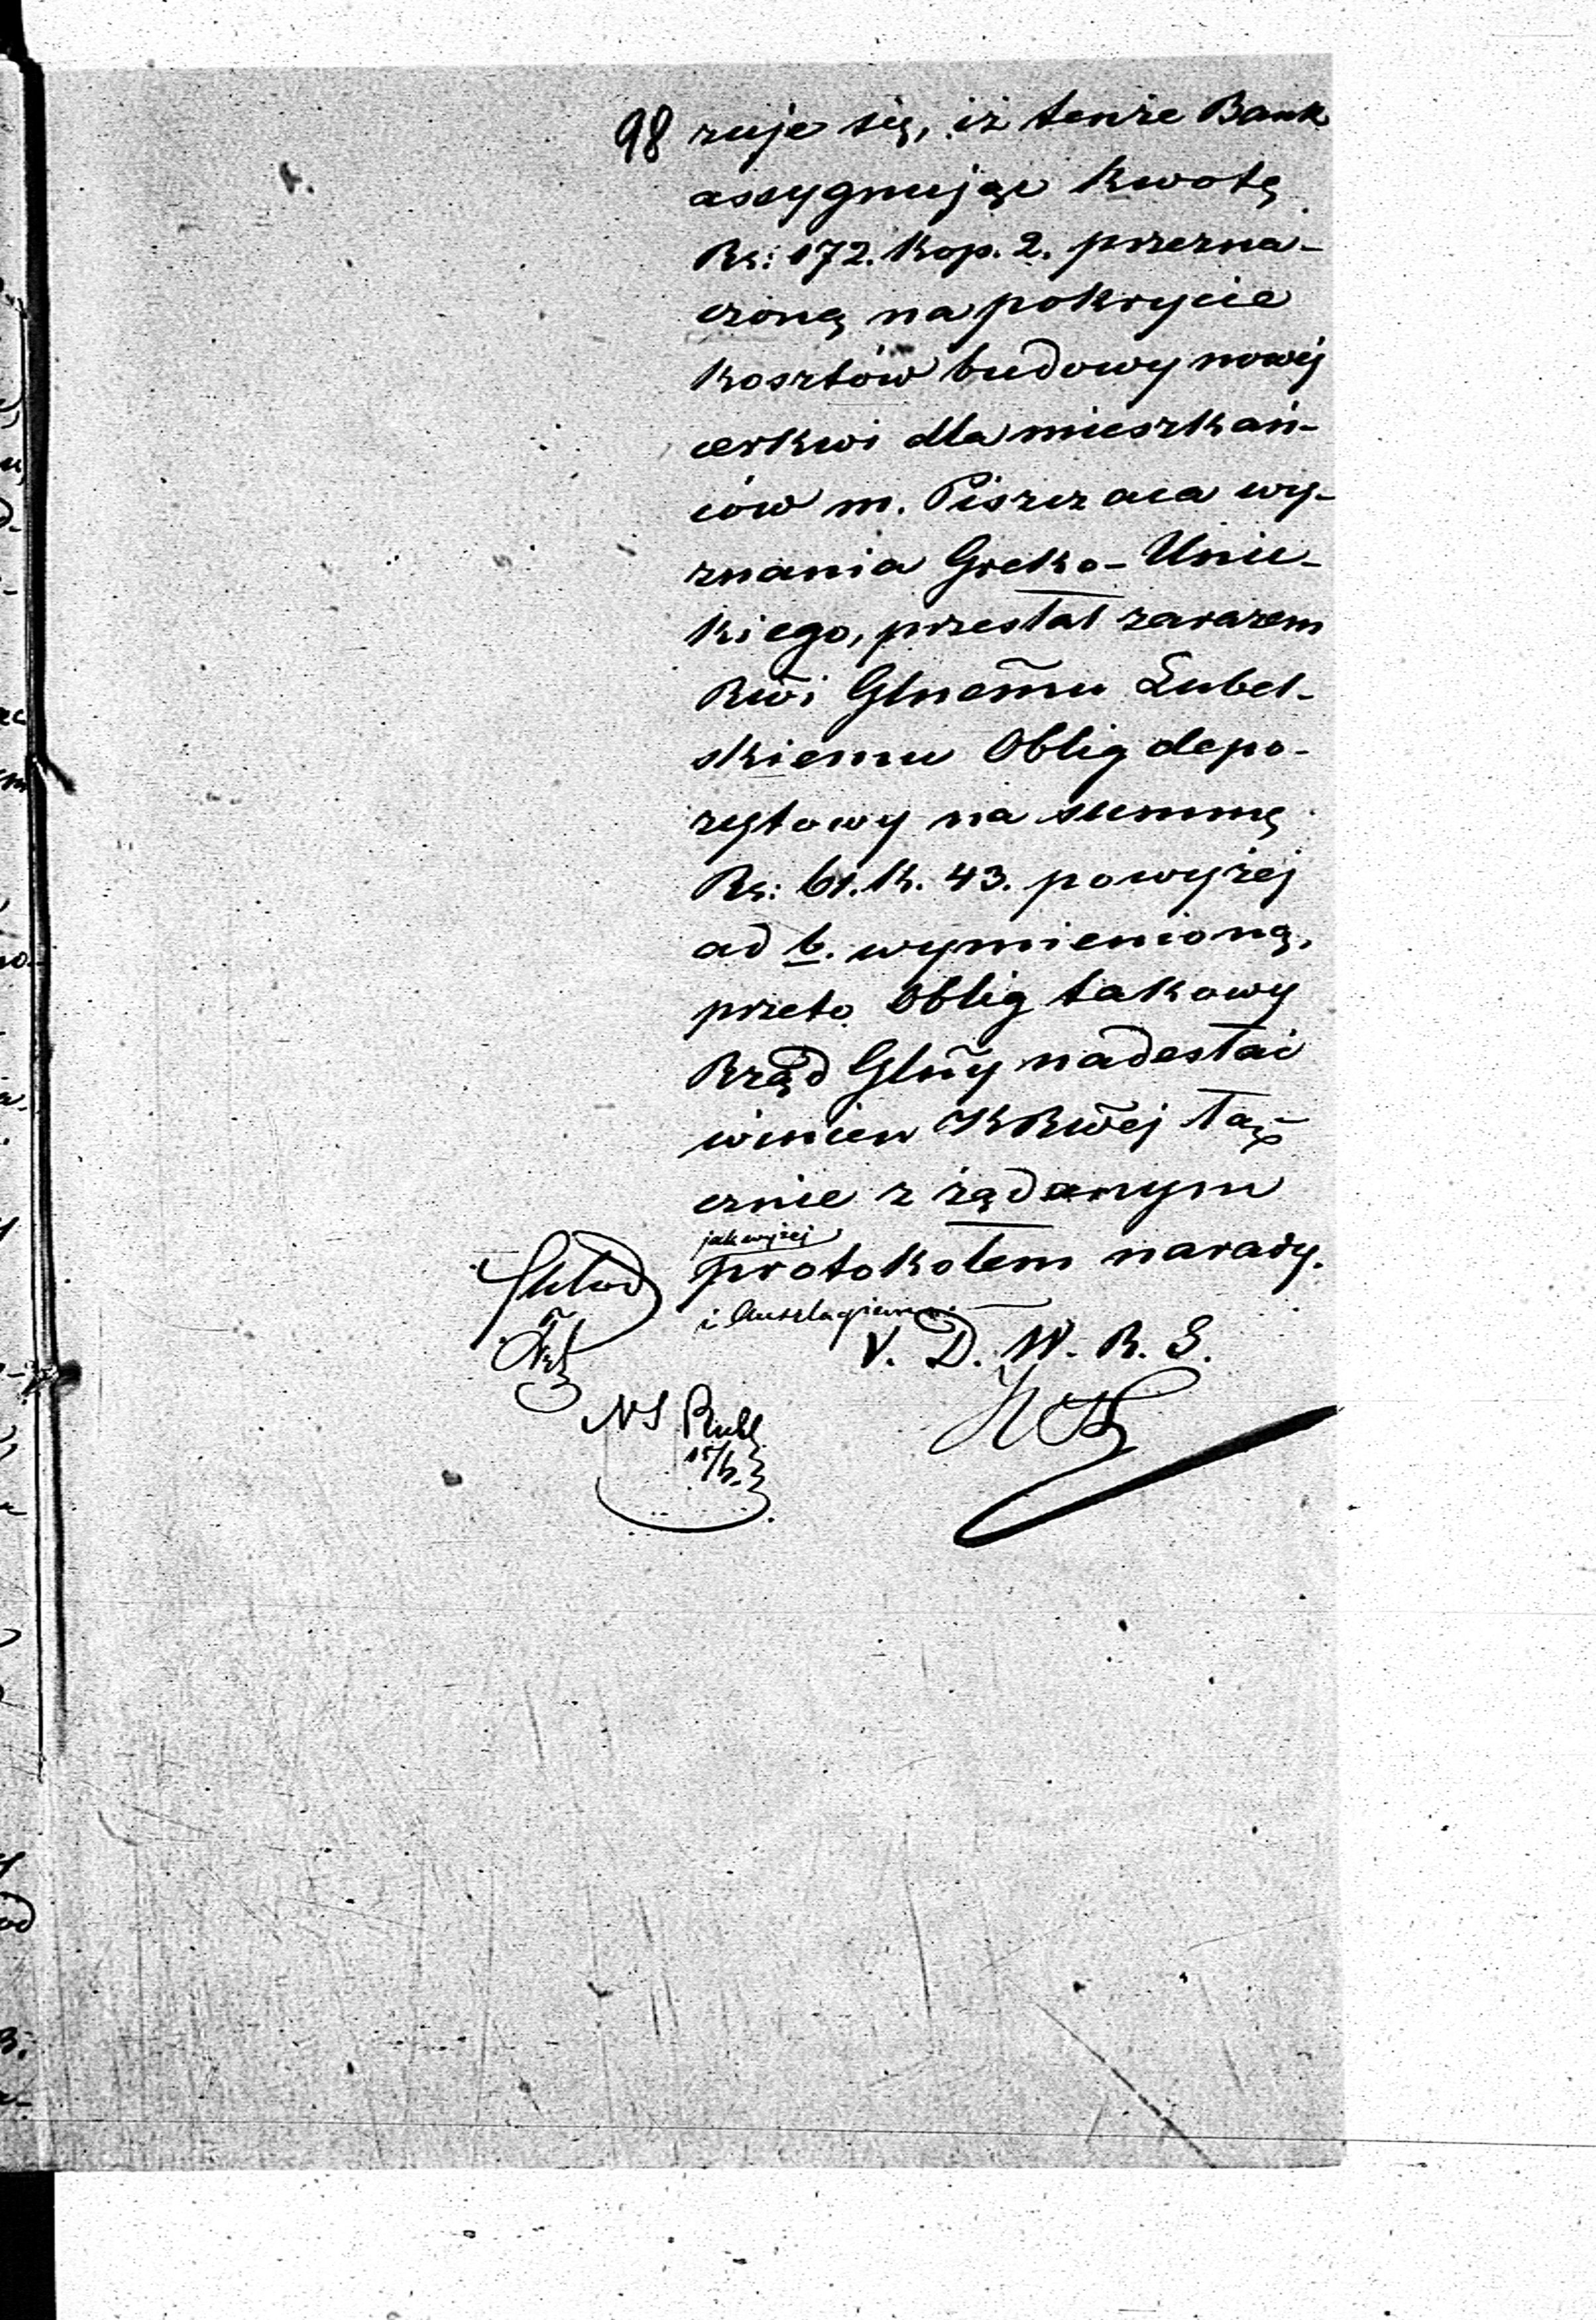 98 zuje się, iż tenże Bank
assygnując kwotę
Rs: 172. kop. 2. przezna-
czoną na pokrycie
kosztów budowy nowéj
cerkwi dla mieszkań-
ców m. Piszczaca wy-
znania Greko-Unic-
kiego, przesłał zarazem
Rwi Glnemu Lubel-
skiemu Oblig depo-
zytowy na summę
Rs: 61. k. 43. powyżej
ad b. wymienioną,
przeto Oblig takowy
Rząd Glny nadesłać
winien KRwej łą-
cznie z żądanym
jak wyżej
protokołem narady.
i Anszlagiem
V. D. W. R. S.
NS Rubl
15/6